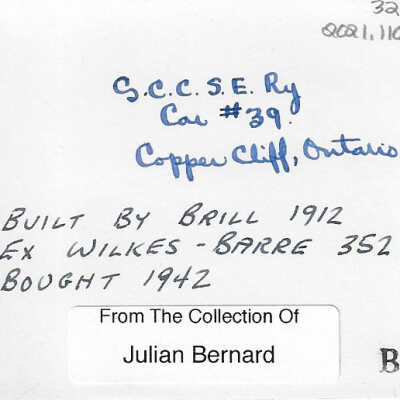 32
2021.110
S.C.C.S.E. Ry
Car #39.
Copper Cliff, Ontario
BUILT BY BRILL 1912
EX WILKES-BARRE 352
BOUGHT 1942
From The Collection Of
Julian Bernard
B